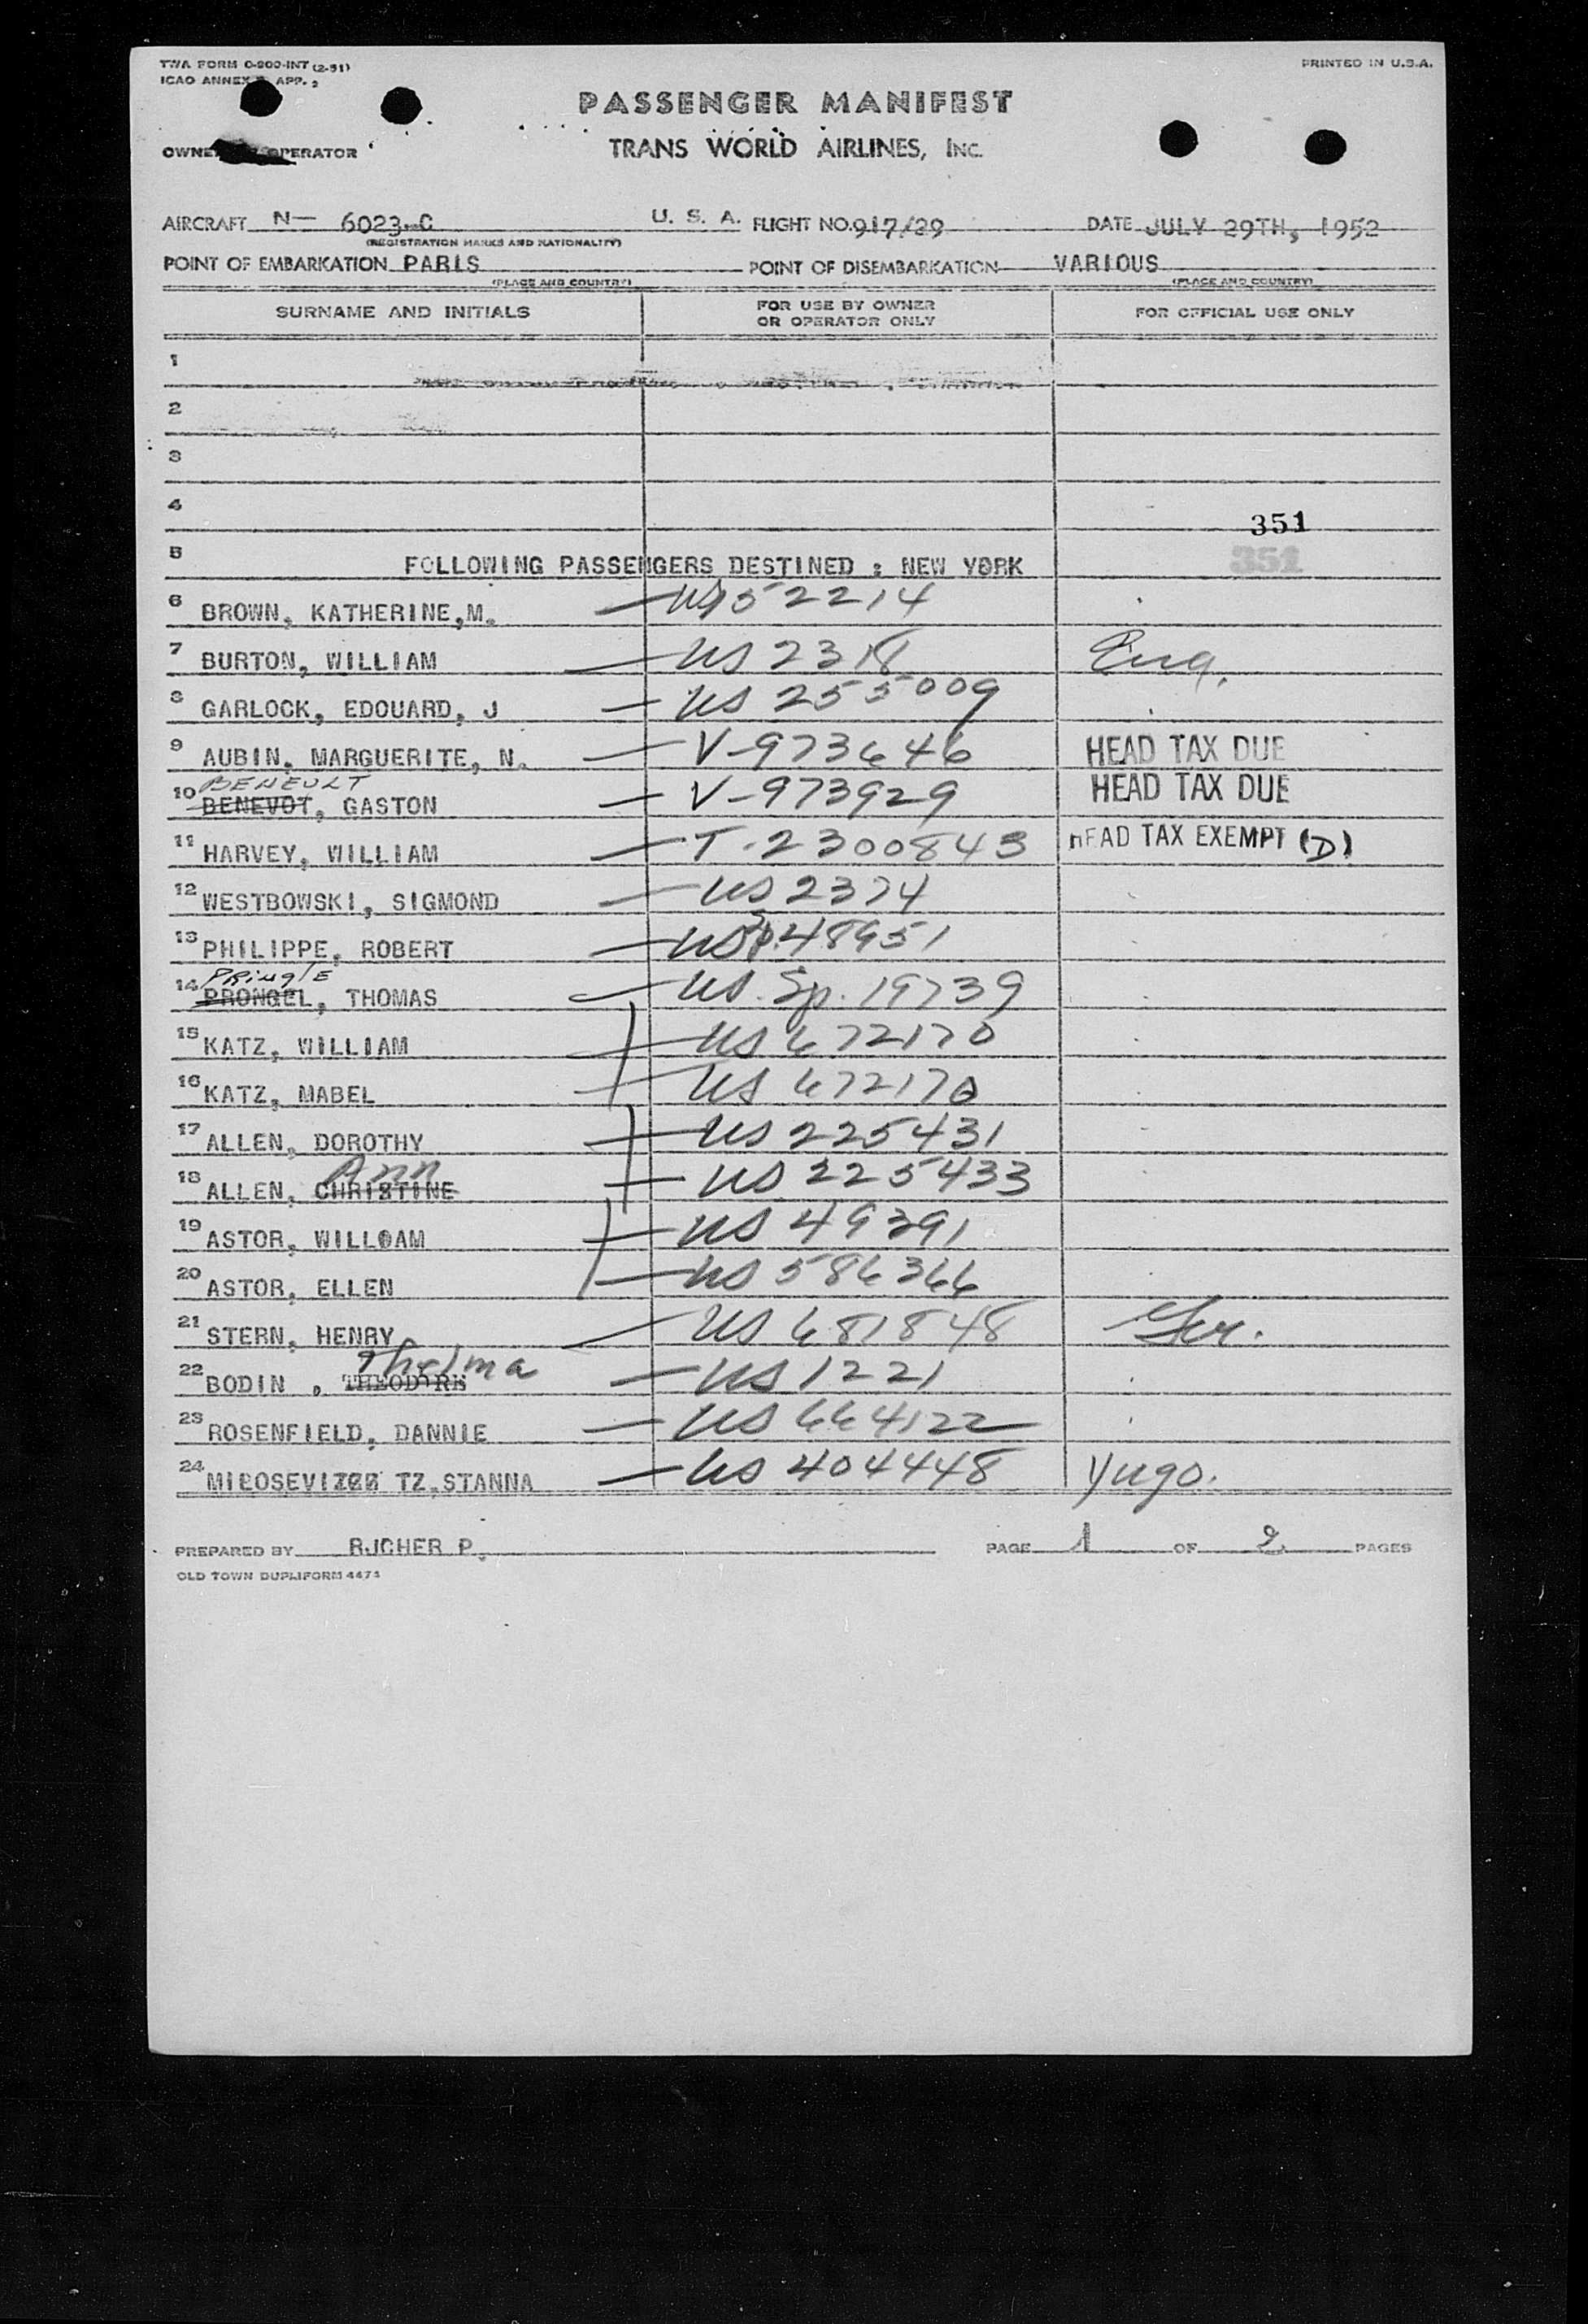 TWA FORM 0-800-INT (2-51)
PRINTED IN U.S.A.
ICAO ANNEX APP. 2
PASSENGER MANIFEST
OWNER OPERATOR
TRANS WORLD AIRLINES, INC.
AIRCRAFT N— 6023-C U. S. A. FLIGHT NO. 917/29 DATE JULY 29TH, 1952
(REGISTRATION MARKS AND NATIONALITY)
POINT OF EMBARKATION PARIS POINT OF DISEMBARKATION VARIOUS
(PLACE AND COUNTRY) (PLACE AND COUNTRY)
SURNAME AND INITIALS FOR USE BY OWNER OR OPERATOR ONLY FOR OFFICIAL USE ONLY
1
2
3
4
351
5 FOLLOWING PASSENGERS DESTINED : NEW YORK 351
6 BROWN, KATHERINE,M. — US 52214
7 BURTON, WILLIAM — US 2318 Eng.
8 GARLOCK, EDOUARD, J — US 255009
9 AUBIN, MARGUERITE, N. — V-973646 HEAD TAX DUE
BENEULT
10 BENEVOT, GASTON — V-973929 HEAD TAX DUE
11 HARVEY, WILLIAM — T-2300843 HEAD TAX EXEMPT (D)
12 WESTBOWSKI, SIGMOND — US 2374
13 PHILIPPE, ROBERT — US Sp. 48951
PRINGLE
14 PRONGEL, THOMAS — US. Sp. 19739
15 KATZ, WILLIAM — US 672170
16 KATZ, MABEL — US 672170
17 ALLEN, DOROTHY — US 225431
Ann
18 ALLEN, CHRISTINE — US 225433
19 ASTOR, WILLOAM — US 49391
20 ASTOR, ELLEN — US 586366
21 STERN, HENRY — US 681848 Ger.
Thelma
22 BODIN , — US 1221
23 ROSENFIELD, DANNIE — US 664122
24 TZ,STANNA — US 404448 Yugo.
PREPARED BY RJCHER P. PAGE 1 OF 2 PAGES
OLD TOWN DUPLIFORM 4474